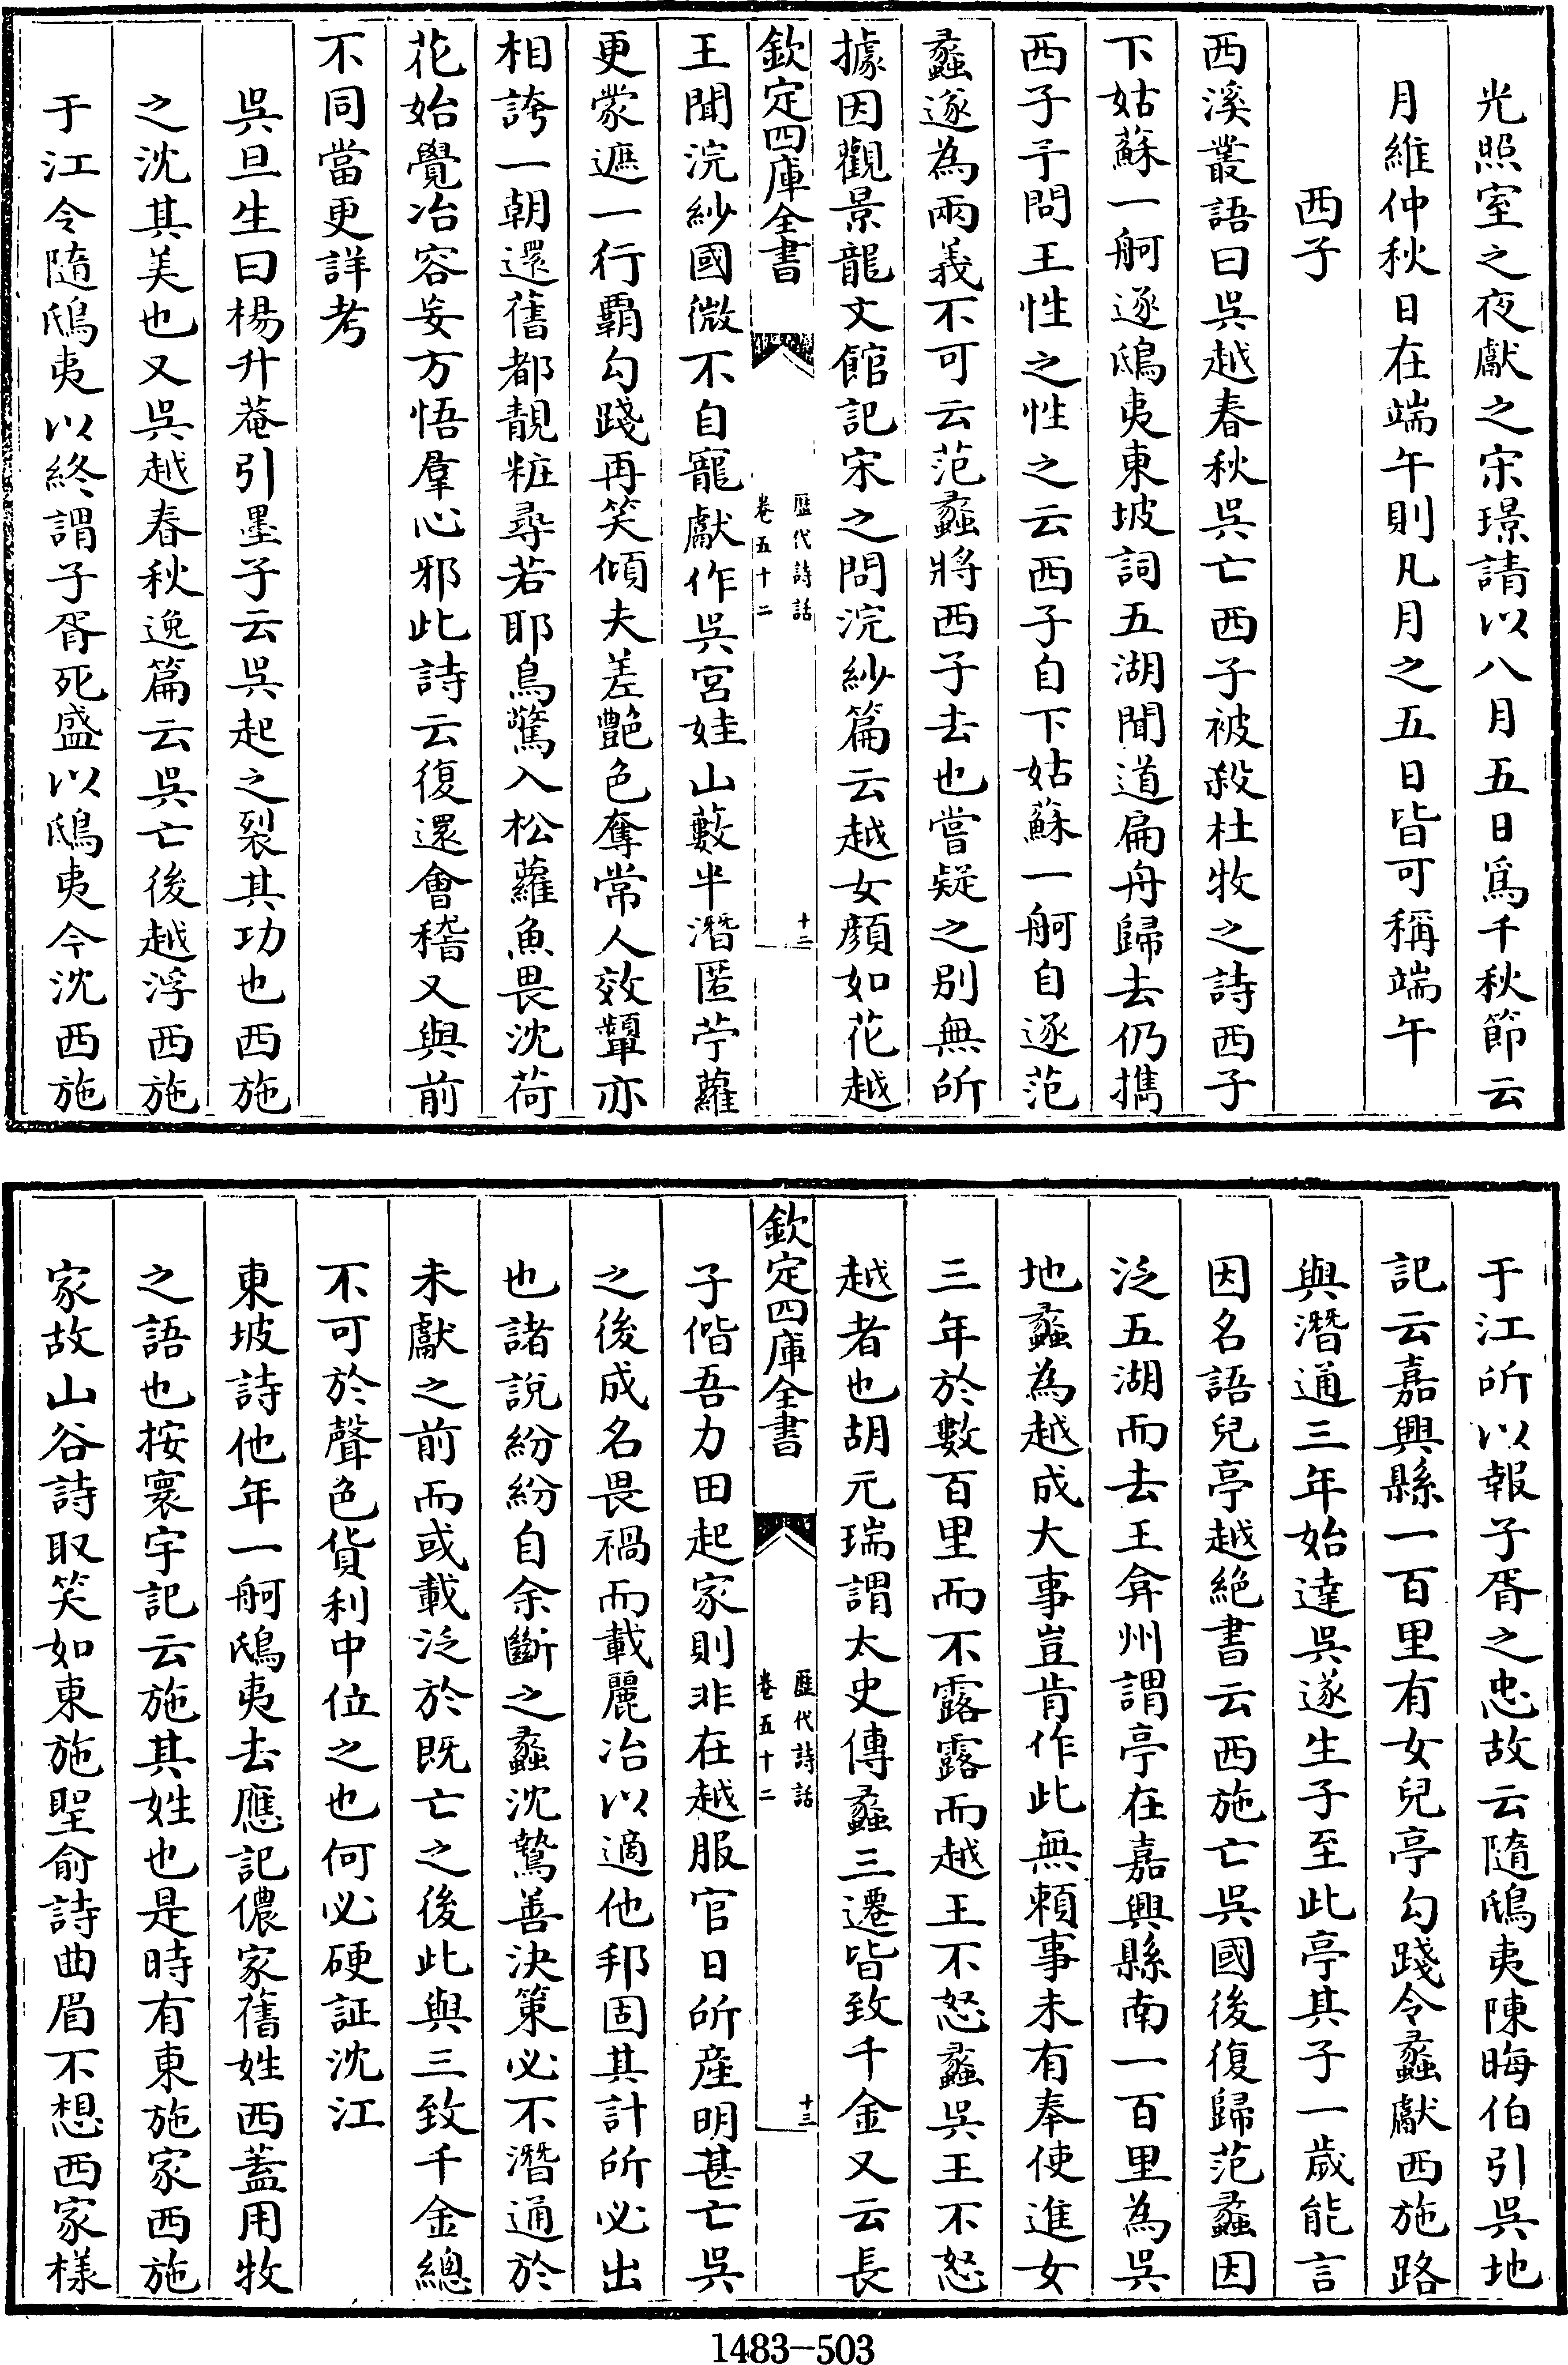 光照室之夜獻之宋璟請以八月五日爲千秋節云
月維仲秋日在端午則凡月之五日皆可稱端午
西子
西溪叢語曰吳越春秋吳亡西子被殺杜牧之詩西子
下姑蘇一舸逐鴟夷東坡詞五湖聞道扁舟歸去仍攜
西子予問王性之性之云西子自下姑蘇一舸自逐范
蠡遂為兩義不可云范蠡將西子去也嘗疑之别無所
據因觀景龍文館記宋之問浣紗篇云越女顔如花越
欽定四庫全書
歴代詩話
卷五十二
十二
王聞浣紗國微不自寵獻作吳宮娃山藪半潛匿苧蘿
更蒙遮一行覇勾踐再笑傾夫差艶色奪常人效顰亦
相誇一朝還舊都靚粧尋若耶鳥驚入松蘿魚畏沈荷
花始覺冶容妄方悟羣心邪此詩云復還會稽又與前
不同當更詳考
吳旦生曰楊升菴引墨子云吳起之裂其功也西施
之沈其美也又吳越春秋逸篇云吳亡後越浮西施
于江令隨鴟夷以終謂子胥死盛以鴟夷今沈西施
于江所以報子胥之忠故云隨鴟夷陳晦伯引吳地
記云嘉興縣一百里有女兒亭勾踐令蠡獻西施路
與潛通三年始達吳遂生子至此亭其子一歲能言
因名語兒亭越絶書云西施亡吳國後復歸范蠡因
泛五湖而去王弇州謂亭在嘉興縣南一百里為吳
地蠡為越成大事豈肯作此無賴事未有奉使進女
三年於數百里而不露露而越王不怒蠡吳王不怒
越者也胡元瑞謂太史傳蠡三遷皆致千金又云長
欽定四庫全書
歴代詩話
卷五十二
十三
子偕吾力田起家則非在越服官日所産明甚亡吳
之後成名畏禍而載麗冶以適他邦固其計所必出
也諸說紛紛自余斷之蠡沈鷙善決策必不潛通於
未獻之前而或載泛於既亡之後此與三致千金總
不可於聲色貨利中位之也何必硬証沈江
東坡詩他年一舸鴟夷去應記儂家舊姓西蓋用牧
之語也按寰宇記云施其姓也是時有東施家西施
家故山谷詩取笑如東施聖俞詩曲眉不想西家樣
1483-503